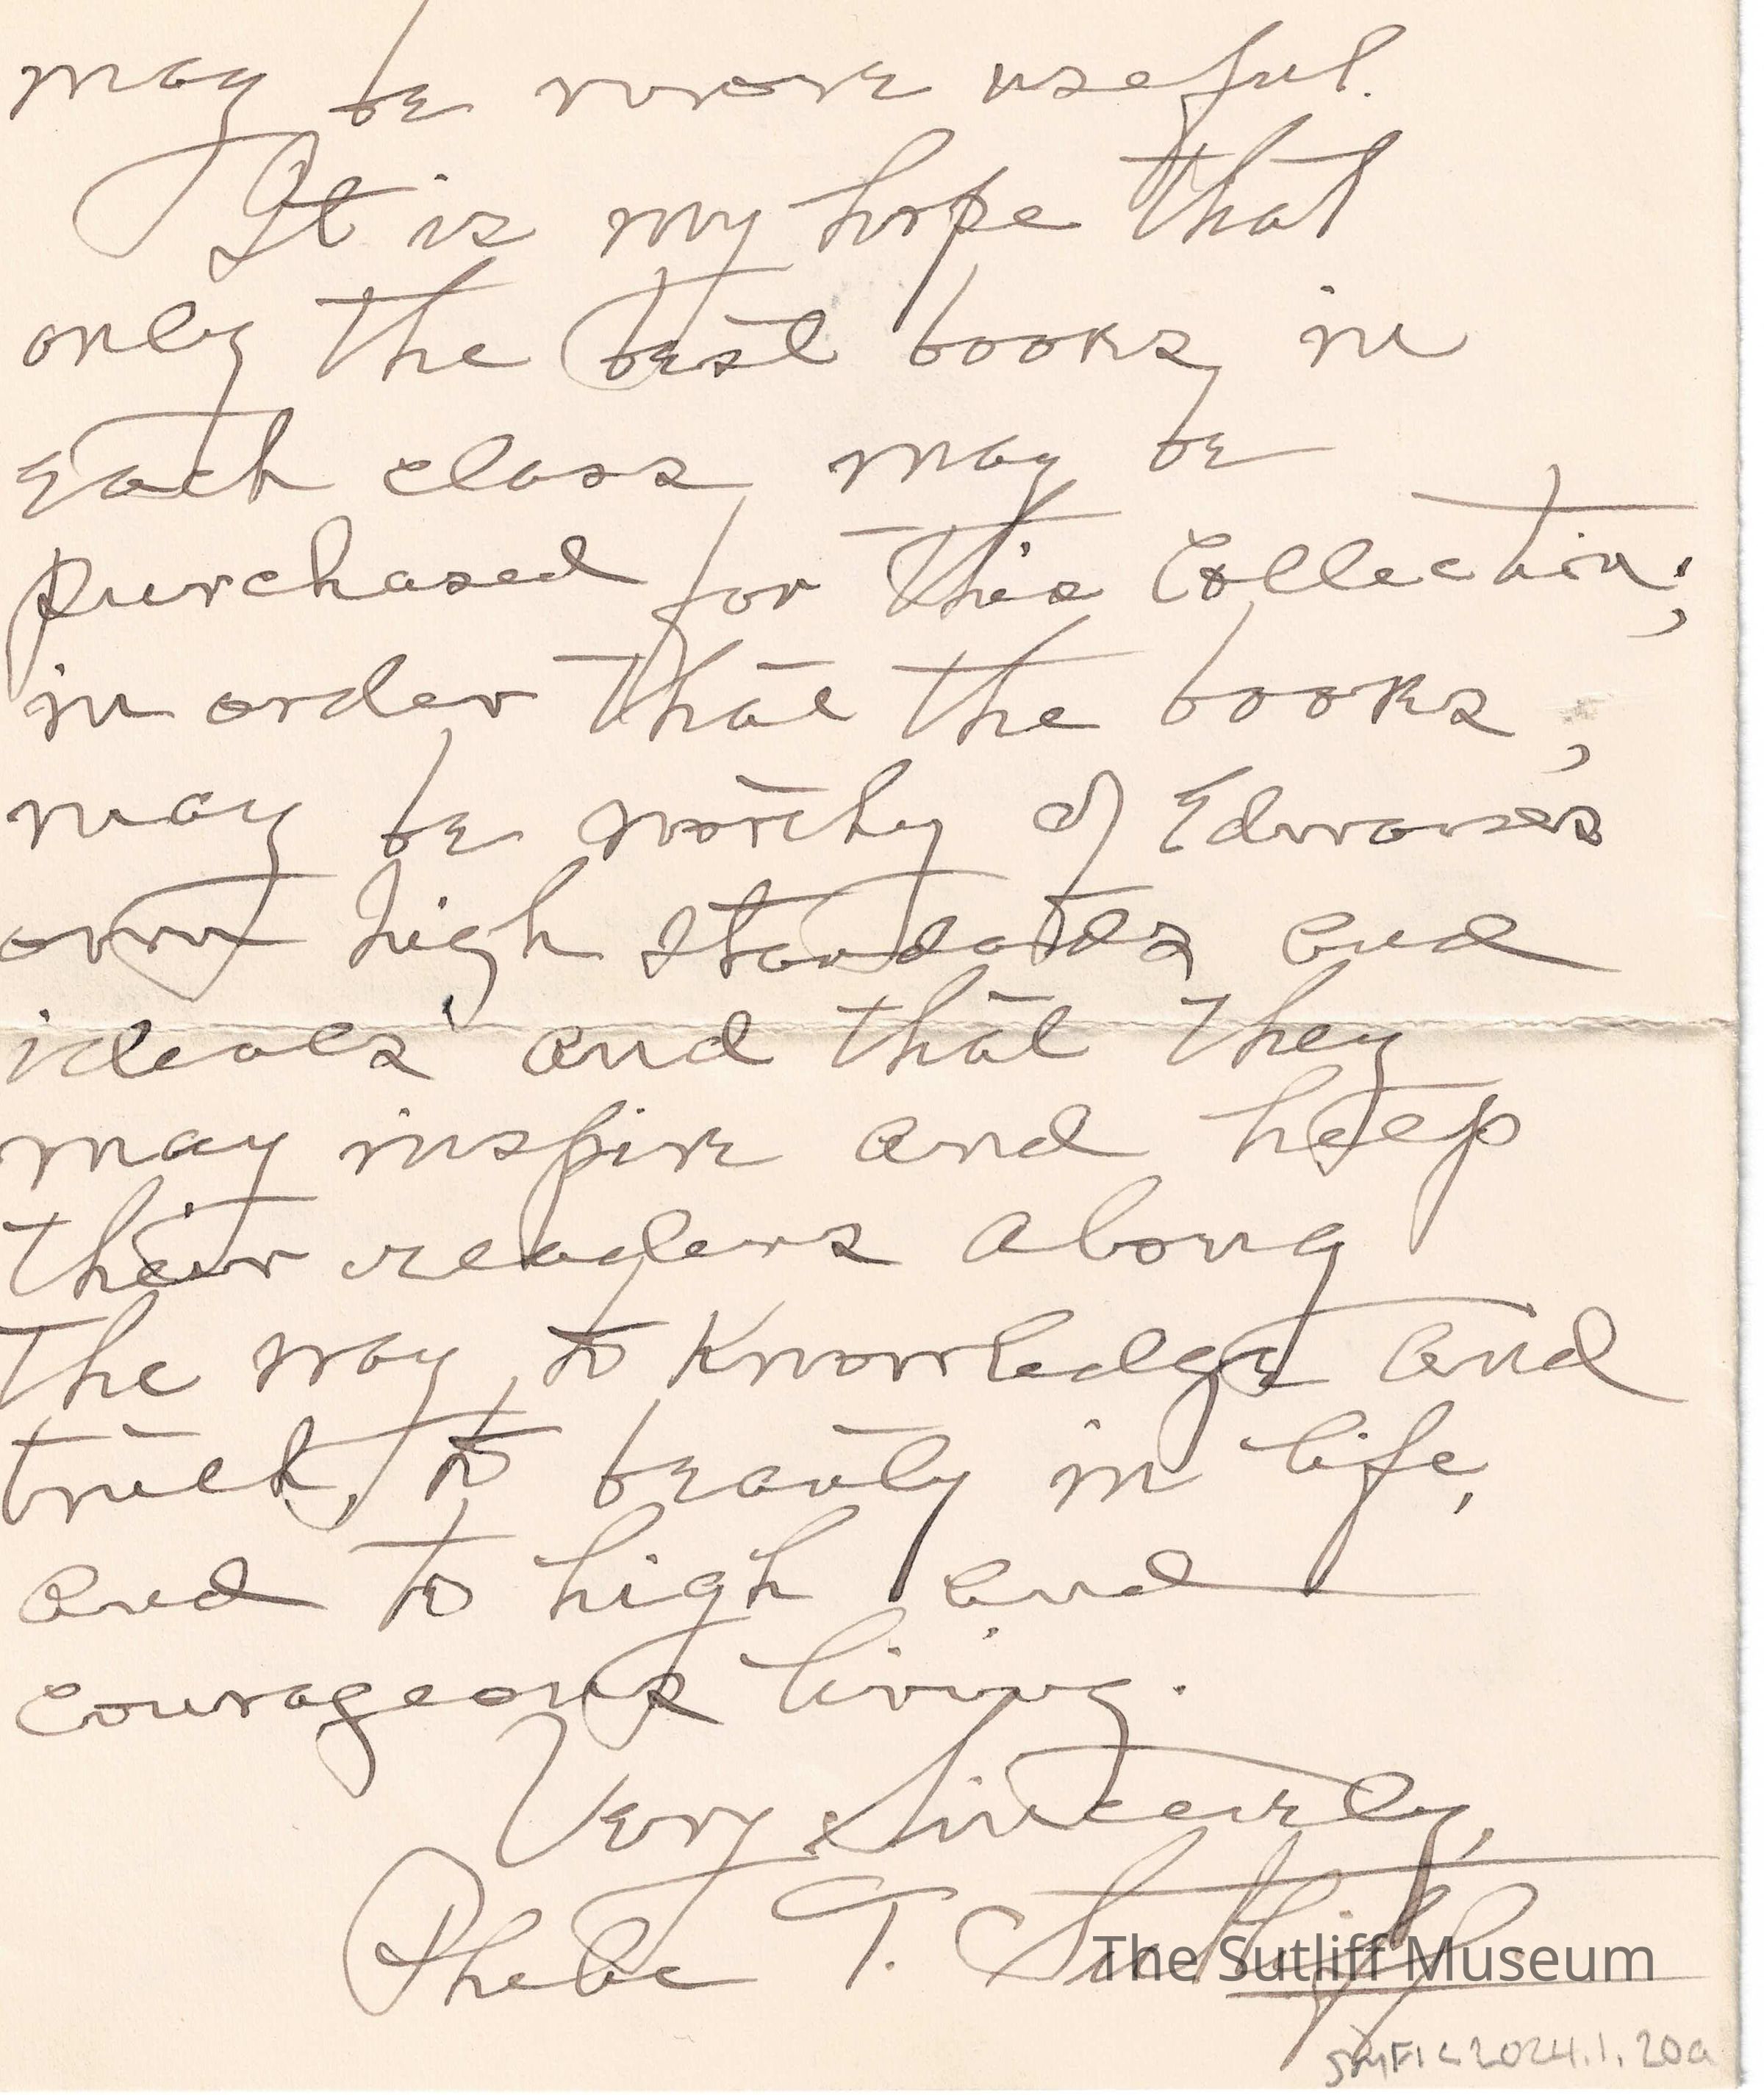 may be more useful.
It is my hope that
only the best books in
each class may be
purchased for this Collection;
in order that the books,
may be worthy of
own high standards and
ideals and that they
may inspire and help
their readers along
the way to Knowledge and
truth, to beauty in life,
and to high and
courageous living.
Very Sincerely,
Phebe T. Sutliff
The Sutliff Museum
2024.1.20a